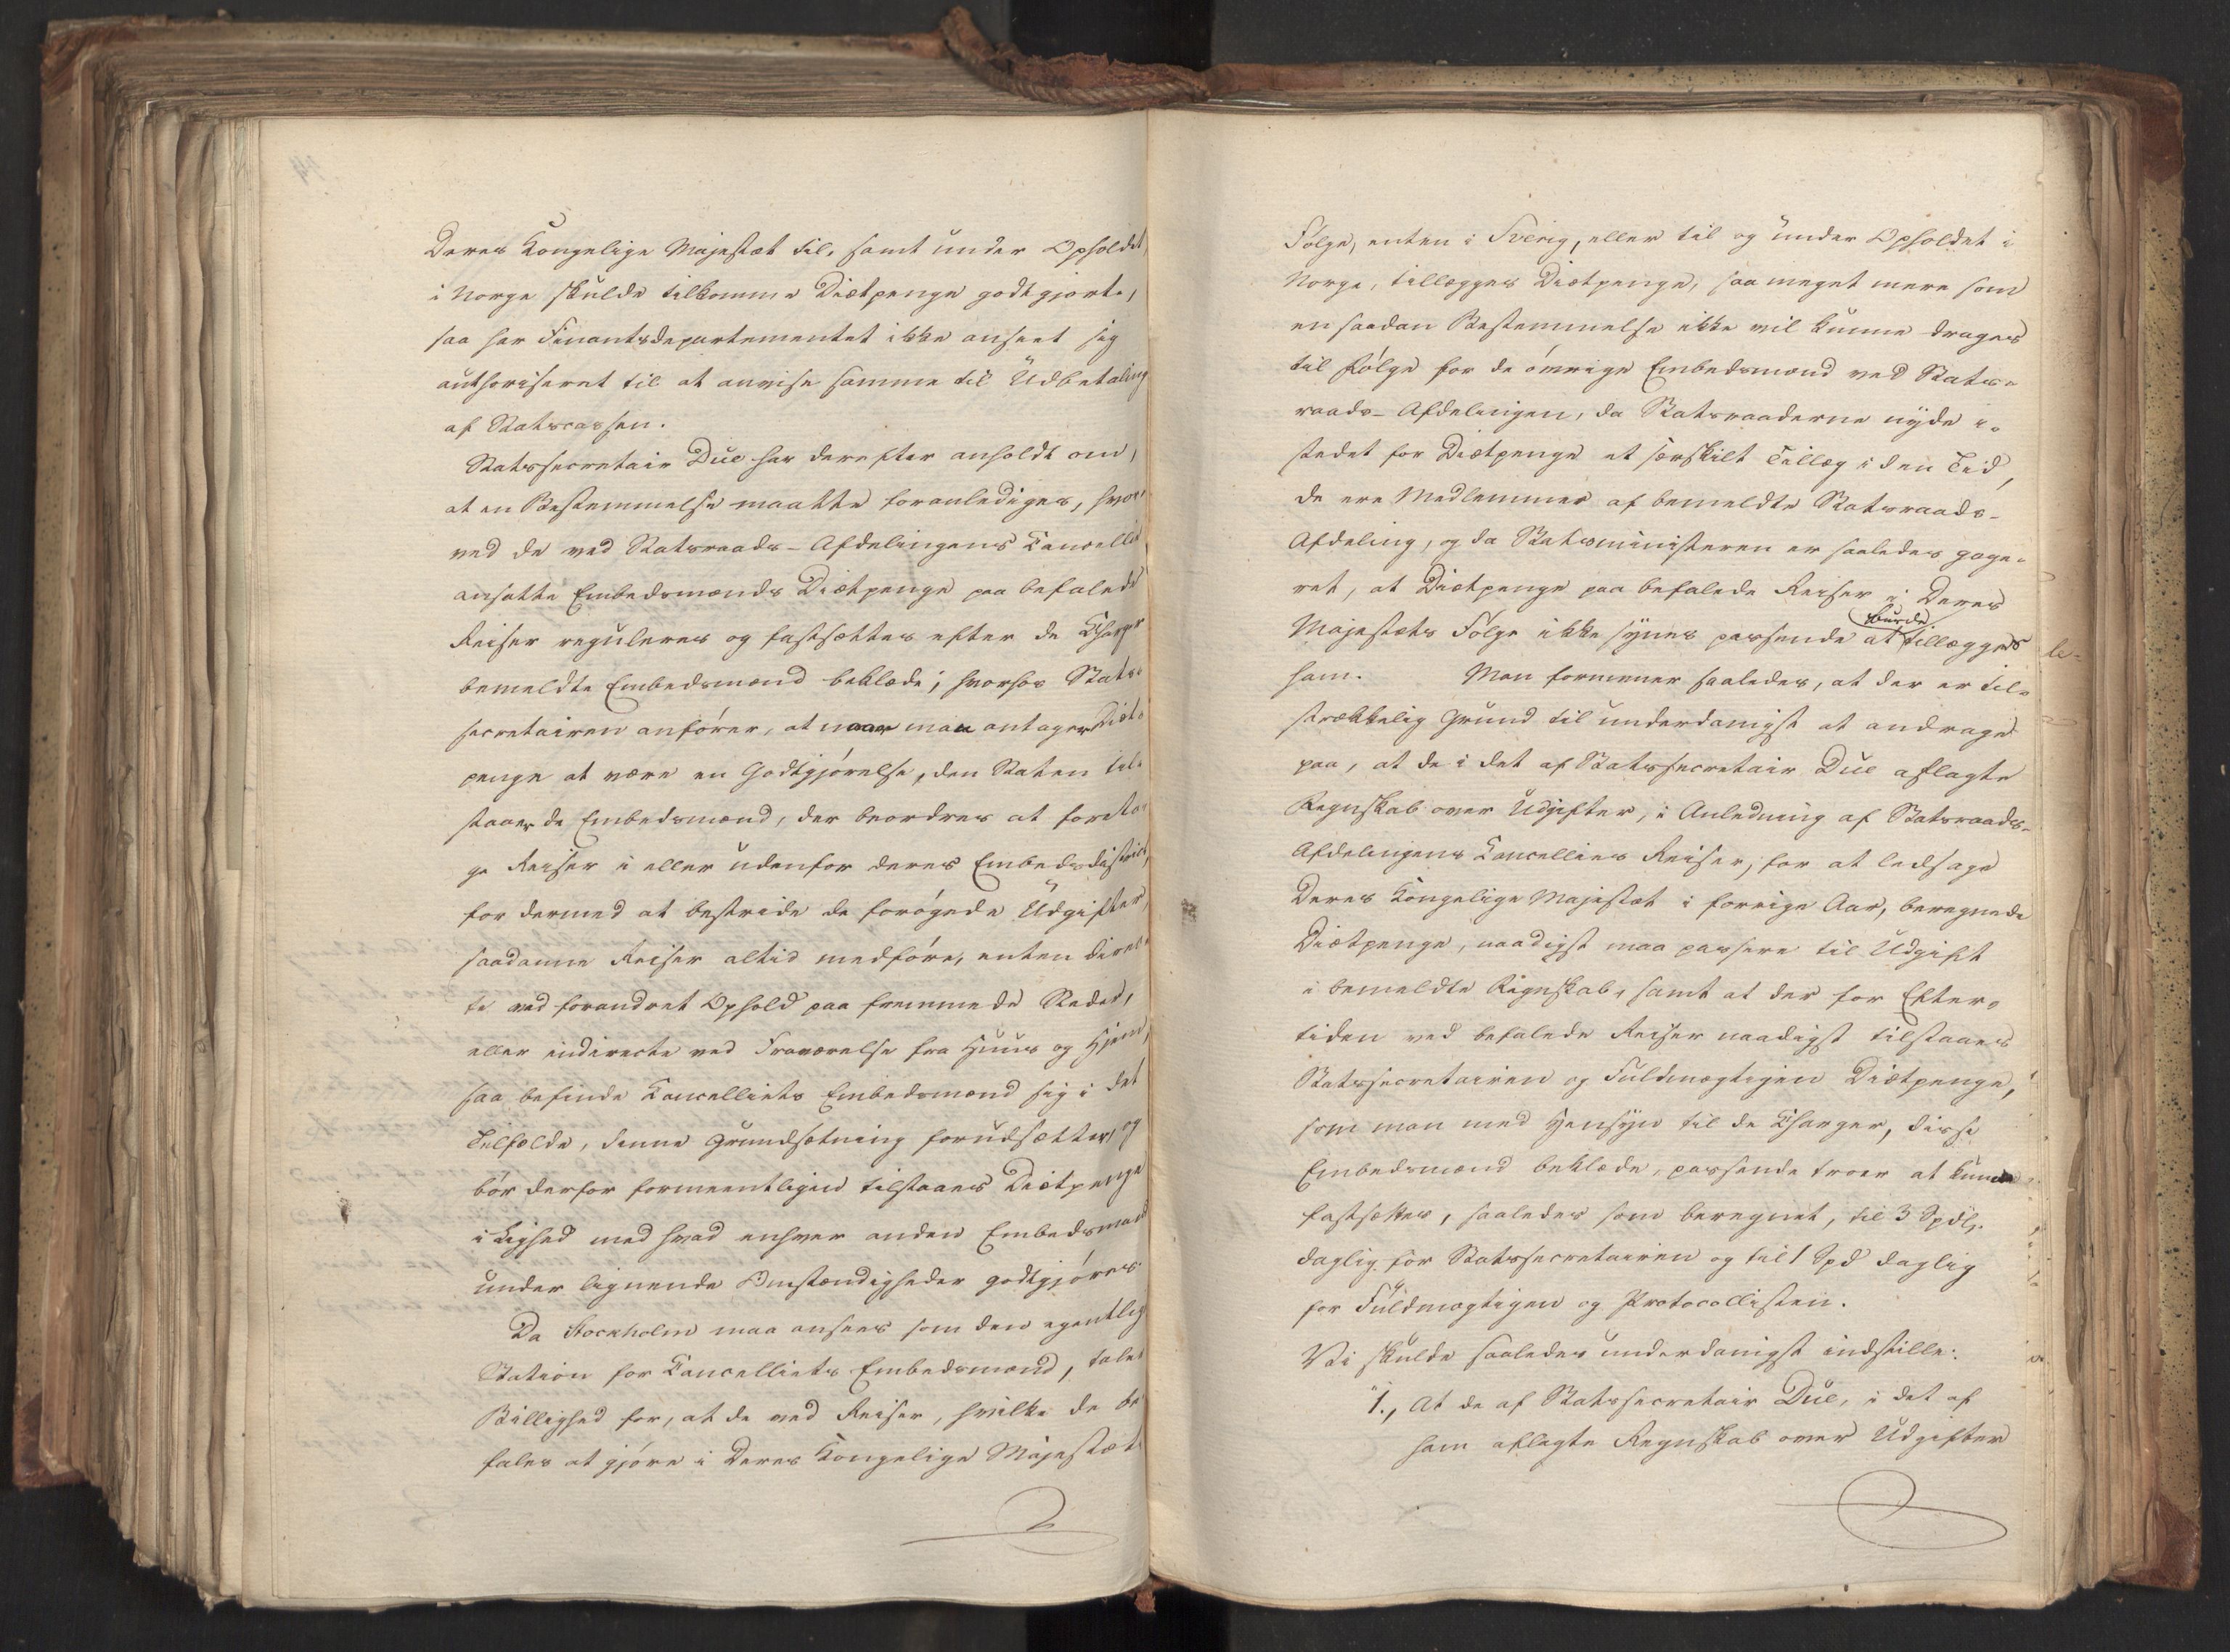 Deres Kongelige Majestæt til, samt under Opholdet
i Norge skulde tilkomme Diætpenge godtgjort,
saa har Finantsdepartementet ikke anseet sig
authoriseret til at anvise samme til Udbetaling
af Statscassen.
Statssecretair Due har derefter anholdt om,
at en Bestemmelse maatte foranlediges, hvor-
ved de ved Statsraads-Afdelingens Cancellie
ansatte Embedsmænds Diætpenge paa befalede
Reiser reguleres og fastsættes efter de Charger
bemeldte Embedsmænd beklæde; hvorhos Stats-
secretairen anfører, at naar man antager Diæt-
penge at være en Godtgjørelse, den Staten til-
staaer de Embedsmænd, der beordres at foreta-
ge Reiser i eller udenfor deres Embedsdistrict,
for dermed at bestride de forøgede Udgifter,
saadanne Reiser altid medføre, enten direc-
te ved forandret Ophold paa fremmede Steder,
eller indirecte ved Fraværelse fra Huus og Hjem,
saa befinde Cancelliets Embedsmænd sig i det
Tilfælde, denne Grundsætning forudsætter, og
bør derfor formeentligen tilstaaes Diætpenge
i Lighed med hvad enhver anden Embedsmand
under lignende Omstændigheder godtgjøres.
Da Stockholm maa ansees som den egentlige
Station for Cancelliets Embedsmænd, taler
Billighed for, at de ved Reiser, hvilke de be-
fales at gjøre i Deres Kongelige Majestæts
Følge, enten i Sverig, eller til og under Opholdet i
Norge, tillægges Diætpenge, saa meget mere som
en saadan Bestemmelse ikke vil kunne drages
til Følge for de øvrige Embedsmænd ved Stats-
raads-Afdelingen, da Statsraaderne nyde i-
stedet for Diætpenge et særskilt Tillæg i den Tid,
de ere Medlemmer af bemeldte Statsraads-
Afdeling, og da Statsministeren er saaledes gage-
ret, at Diætpenge paa befalede Reiser i Deres
Majestæts Følge ikke synes passende at burde tillægges
ham. Man formener saaledes, at der er til-
strækkelig Grund til underdanigst at andrage
paa, at de i det af Statssecretair Due aflagte
Regnskab over Udgifter, i Anledning af Statsraads-
Afdelingens Cancellies Reiser, for at ledsage
Deres Kongelige Majestæt i forrige Aar, beregnede
Diætpenge, naadigst maa passere til Udgift
i bemeldte Regnskab, samt at der for Efter-
tiden ved befalede Reiser naadigst tilstaaes
Statssecretairen og Fuldmægtigen Diætpenge,
som man med Hensyn til de Charger, disse
Embedsmænd beklæde, passende troer at kunne
fastsættes, saaledes som beregnet, til 3 Spdl.
daglig for Statssecretairen og til 1 Spd daglig
for Fuldmægtigen og Protocollisten.
Vi skulde saaledes underdanigst indstille:
1., At de af Statssecretair Due, i det af
ham aflagte Regnskab over Udgifter